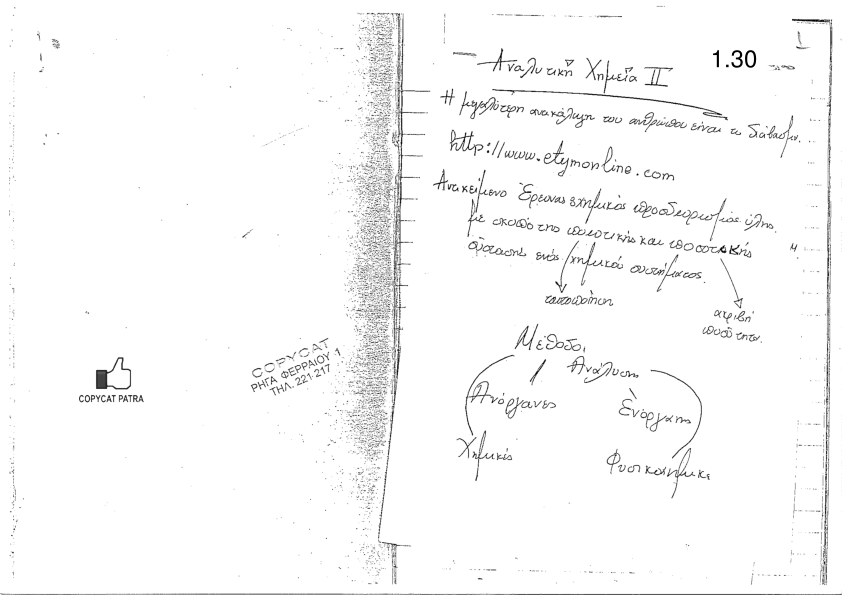 COPYCAT PATRA
COPYCAT
ΡΗΓΑ ΦΕΡΡΑΙΟΥ 1
ΤΗΛ. 221-217
1
1.30
Αναλυτική Χημεία II
Η μεγαλύτερη ανακάλυψη του ανθρώπου είναι το διάβασμα.
http://www.etymonline.com
Αντικείμενο Έρευνας χημικός προσδιορισμός ύλης.
με σκοπό της ποιοτικής και ποσοτικής
σύστασης ενός χημικού συστήματος.
ταυτοποίηση
ακριβή
ποσότητα.
Μέθοδοι
Ανάλυσης
Ανόργανες
Ενόργανης
Χημικές
Φυσικοχημικέ